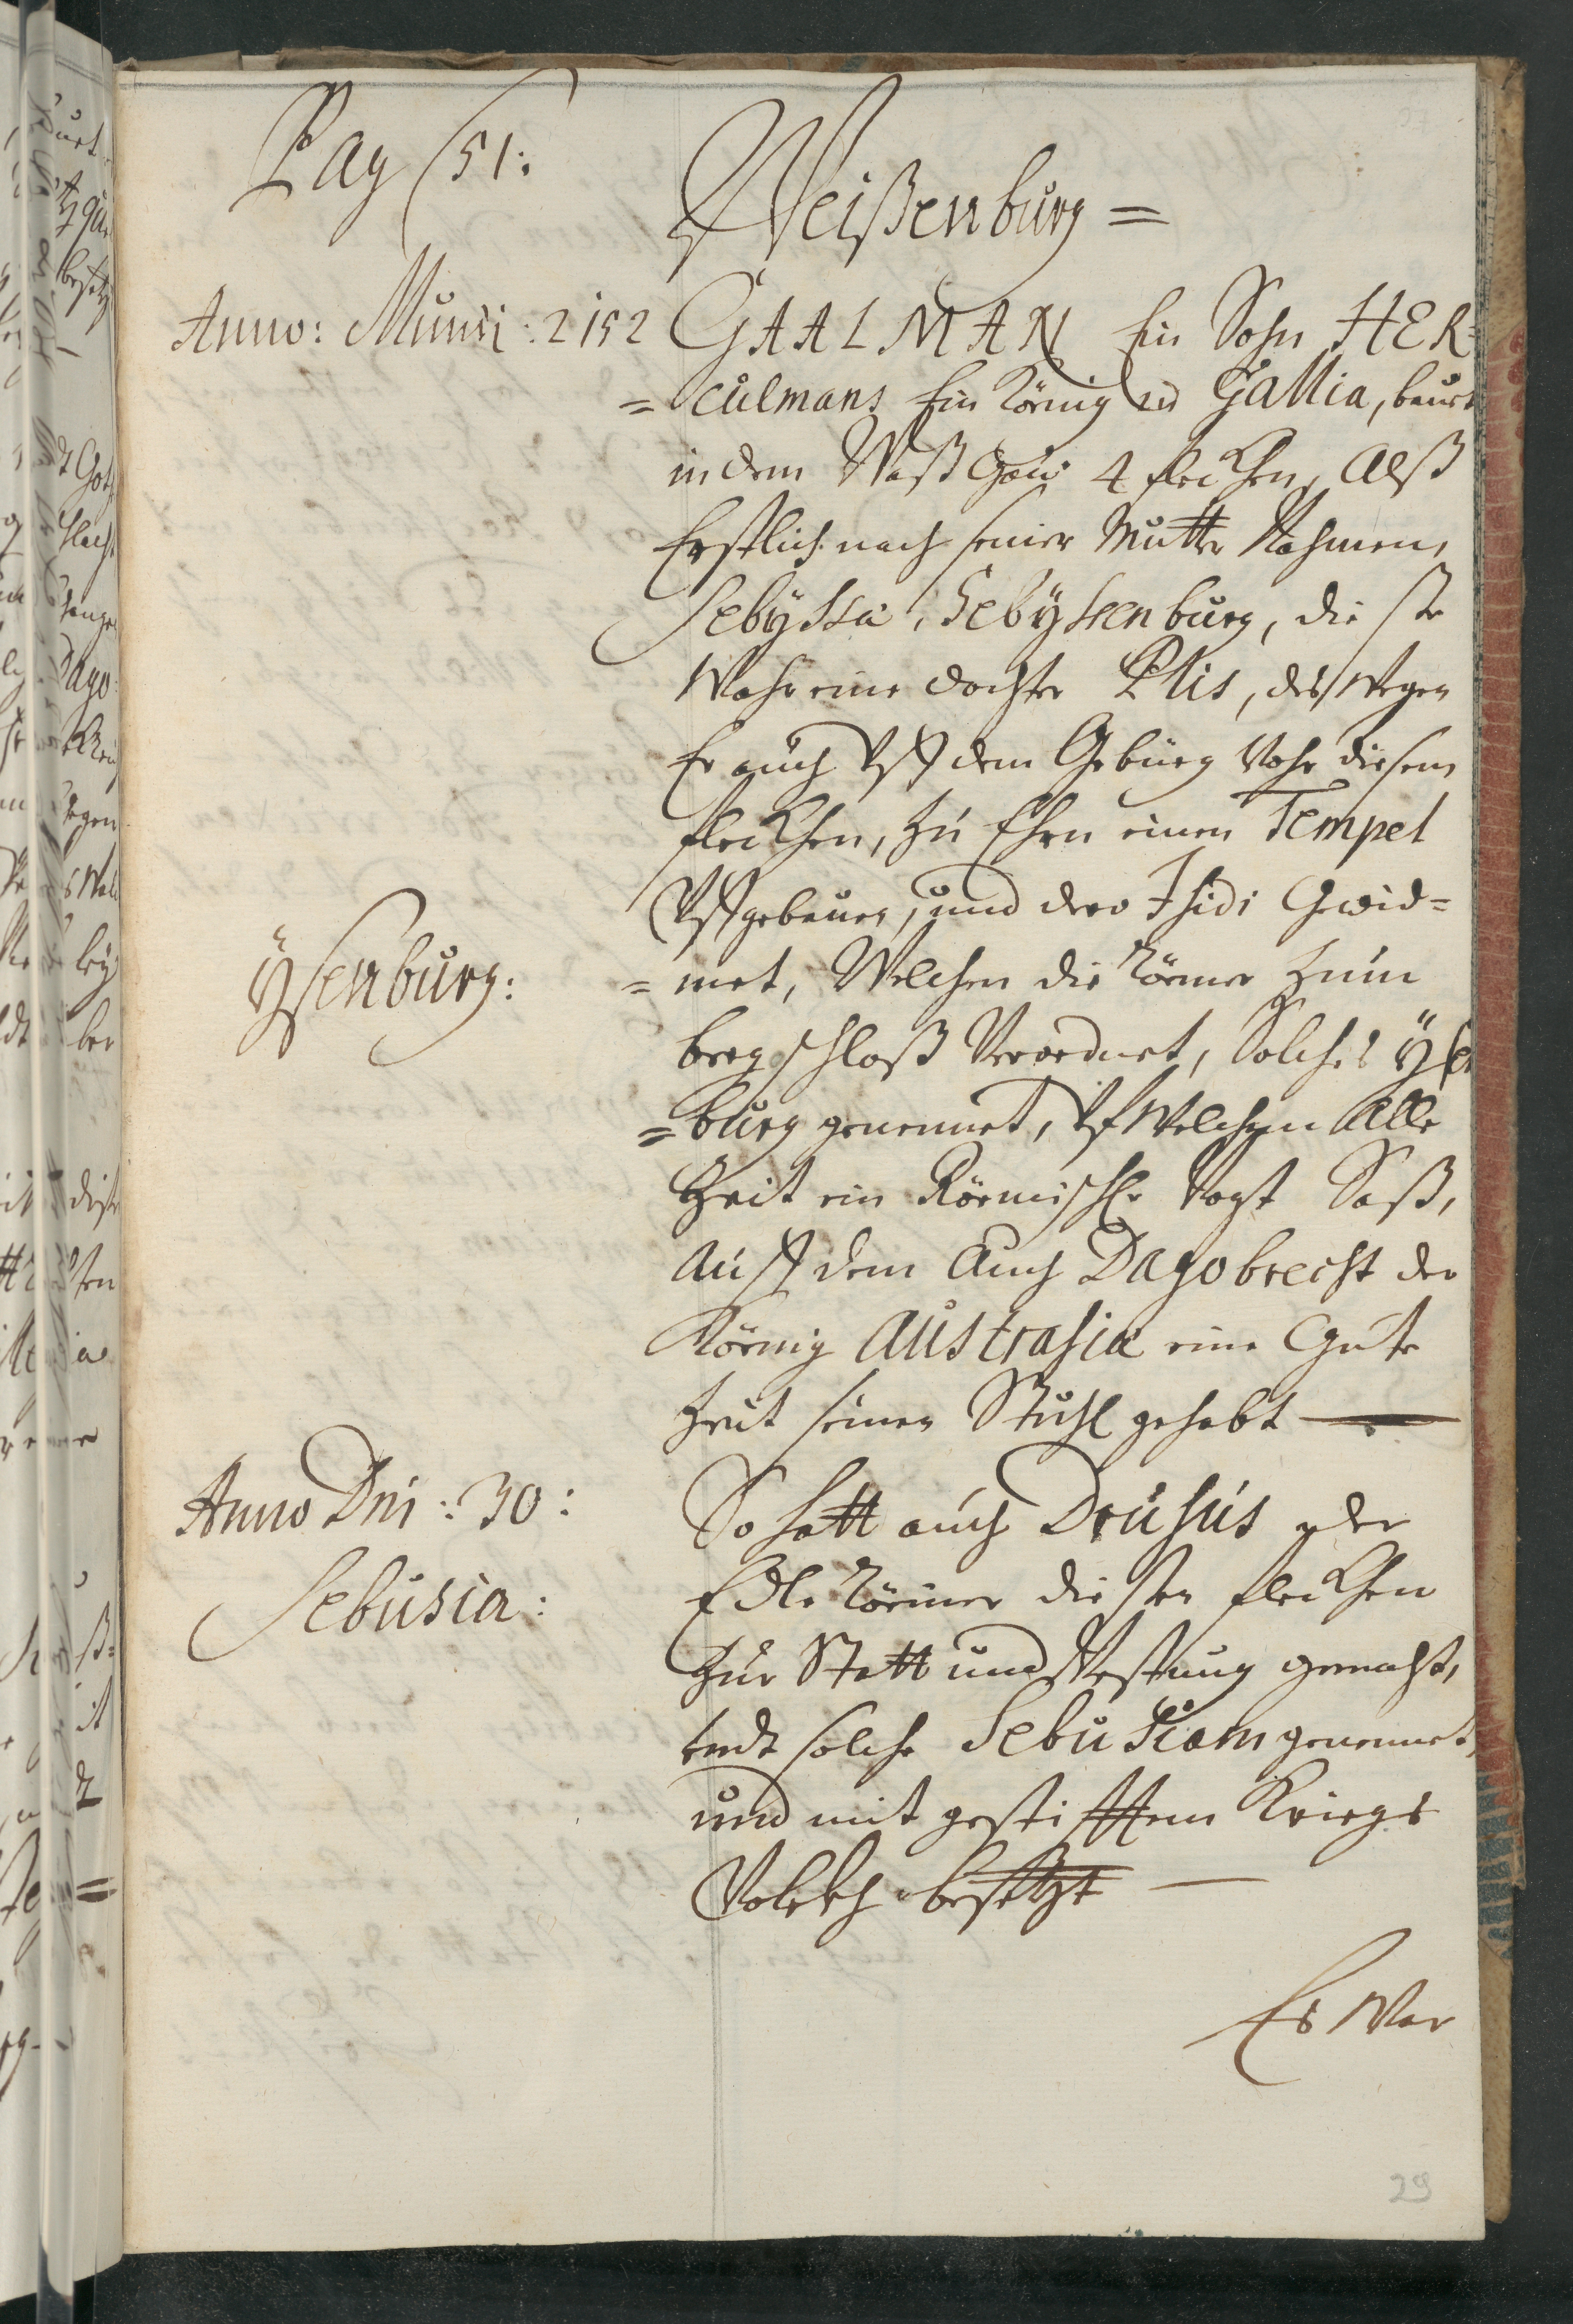 Pag (51:
Weißenburg =
Anno: Mundi: 2152
GAALMAN Ein Sohn HER=
=culmans Ein König in Gallia, baut
in dem Waßgaw 4 fleckhen, Alß
Erstlich nach seiner Mutter Nahmen,
Sebÿssa, Sebÿssenburg, diese
Wahr eine dochter Plis, deßwegen
Er auch Vff dem Gebürg Vohr diesem
fleckhen, zu Ehrn einen Tempel
Vffgebauen, und dero Isidi Gewid=
Ÿsenburg:
=met, Welchen die Römer zum
bergschloß Verordnet, Solches Ÿsen
=burg genennet, Vf Welchem Alle
Zeit ein Römischer Vogt Saß,
Auff dem Auch Dagobrecht der
König Austrasia eine Gute
Zeit seinen Stuhl gehabt
Anno Dni: 30:
So hatt auch Drusus der
Sebusia:
Edle Römer diesen fleckhen
Zur Statt und Vestung gemacht,
undt solche Sebusiam genennet,
und mit gestifftem Kriegs
Volckh besetzt
Es War
29